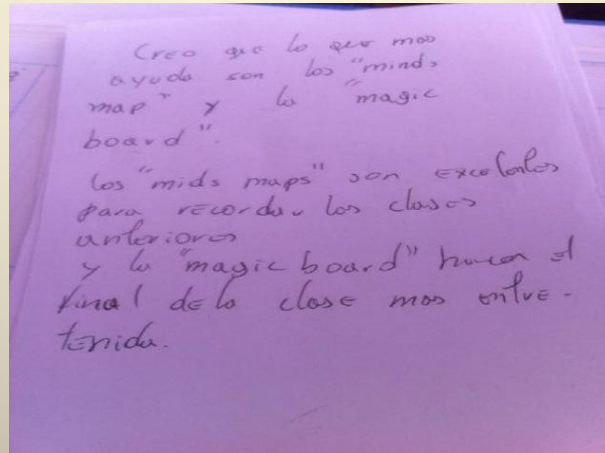 Creo que lo que mas
ayuda son los "minds
map" y la "magic
board".
Los "mids maps" son excelentes
para recordar las clases
anteriores
y la "magic board" hacen el
final de la clase mas entre-
tenida.